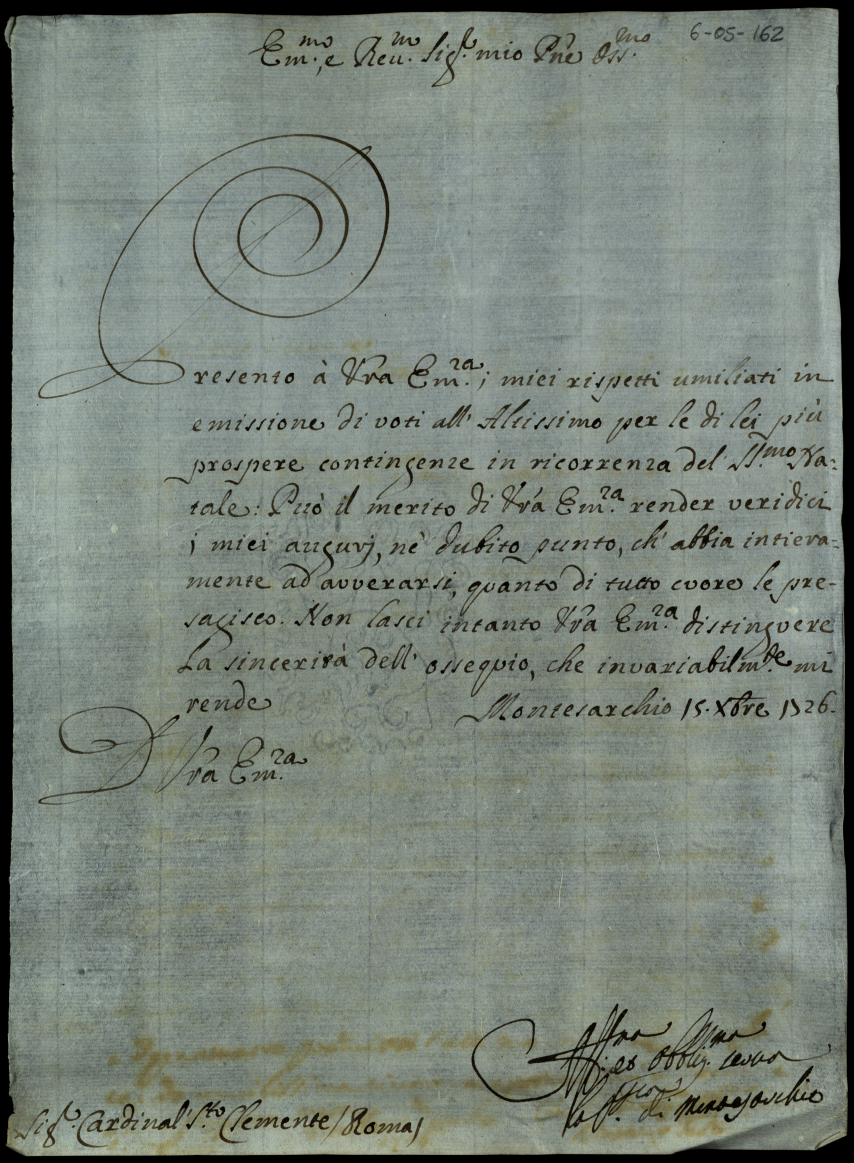 6-05-162
Em.mo, e Reu.mo Sig.r mio Pne Oss.mo
Presento à Vra Em.za i miei rispetti umiliati in
emissione di voti all' Altissimo per le di lei più
prospere contingenze in ricorrenza del SS.mo Na=
tale: Può il merito di Vra Em.za render veridici
i miei augurj, nè dubito punto, ch' abbia intiera=
mente ad avverarsi, quanto di tutto cuore le pre-
sagisco. Non lasci intanto Vra Em.za distinguere
La sincerità dell' ossequio, che invariabilm.te mi
rende
Montesarchio 15. Xbre 1726.
D Vra Em.za
Aff.ma
et obblig.ma serva
la P. di Montesarchio
Sig.r Cardinal S.to Clemente / Roma /